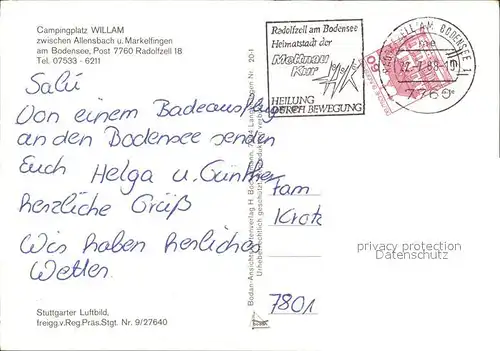 Campingplatz WILLAM
zwischen Allensbach u. Markelfingen
am Bodensee, Post 7760 Radolfzell 18
Tel. 07533 - 6211
Salü
Von einem Badeausflug
an den Bodensee senden
Euch Helga u. Günther
herzliche Grüß
Wir haben herrliches
Wetter
Stuttgarter Luftbild,
freigg.v.Reg.Präs.Stgt. Nr. 9/27640
Bodan-Ansichtskartenverlag H.
Urheberrechtlich geschützt
Radolfzell am Bodensee
Heimatstadt der
Mettnau
Kur
HEILUNG
DURCH BEWEGUNG
AM BODENSEE 1
7760
60
Fam
Kratz
7801
privacy protection
Datenschutz